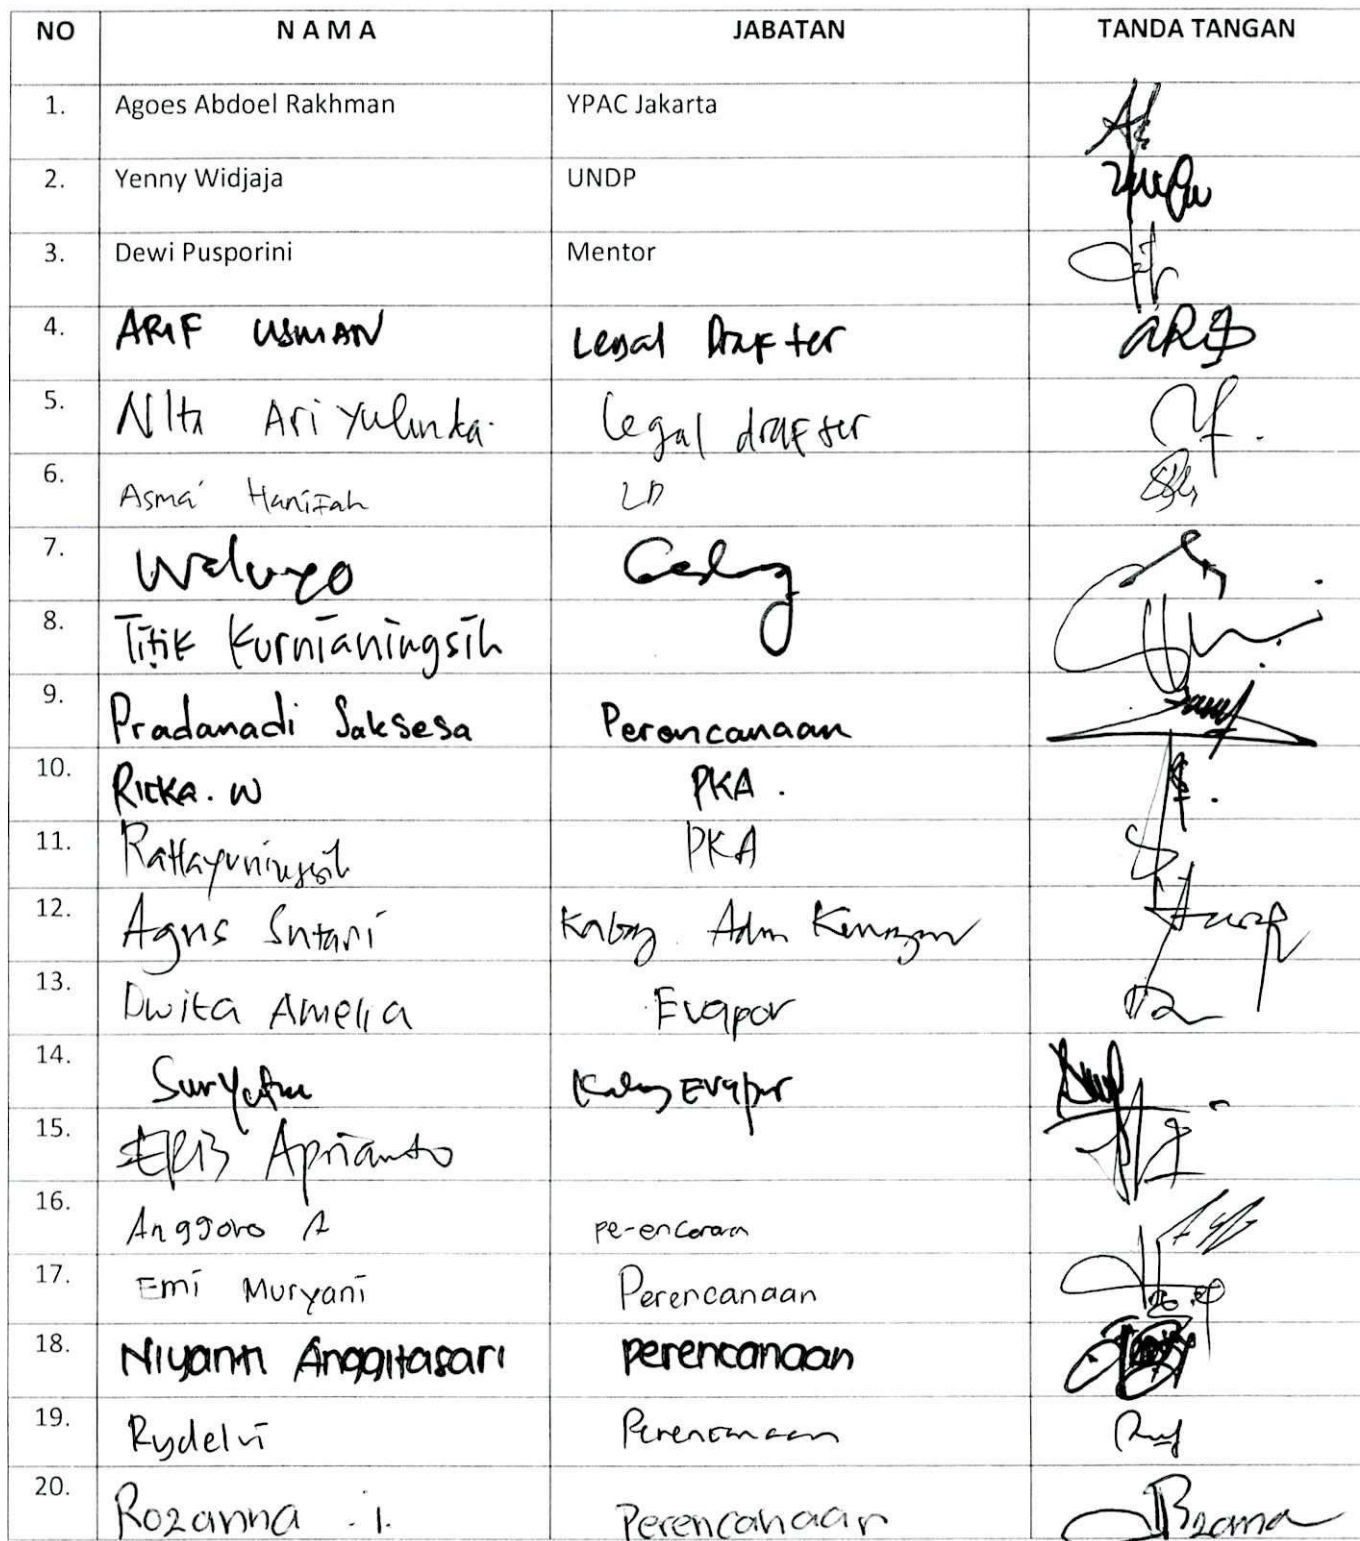 NO N A M A JABATAN TANDA TANGAN
1. Agoes Abdoel Rakhman YPAC Jakarta
2. Yenny Widjaja UNDP
3. Dewi Pusporini Mentor
4. ARIF USMAN Legal Drafter ARIF
5. Nita Ari Yulinka. Legal drafter
6. Asma' Hanifah LD
7. Waluyo
8. Titik Kurnianingsih
9. Pradanadi Saksesa Perencanaan
10. Ricka. W PKA.
11. PKA
12. Agus Sutari Kabag Adm
13. Dwita Amelia Evapor
14. Kabag Evapor
15. Aprianto
16. Anggoro A perencanaan
17. Emi Muryani Perencanaan
18. Niyanti Anggitasari perencanaan
19. Rydelvi Perencanaan
20. Rozanna .i. Perencanaan